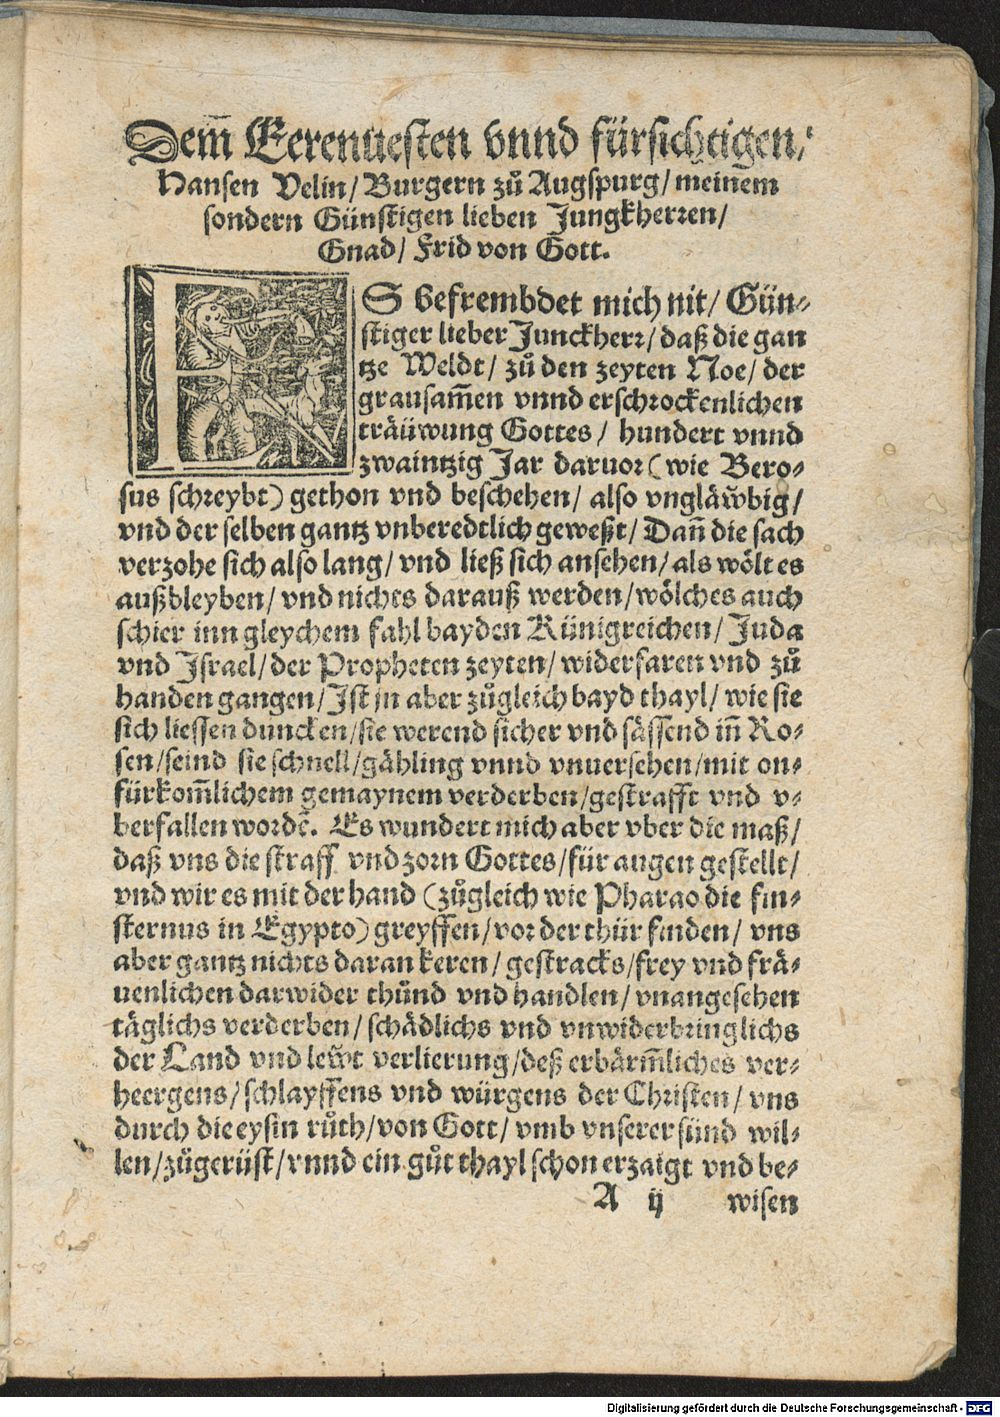 Dem̃ Eerenuesten vnnd fürsichtigen/
Hansen Velin/ Burgern zů Augspurg/ meinem
sondern Günstigen lieben Jungkherren/
Gnad/ Frid von Gott.
ES befrembdet mich nit/ Gün-
stiger lieber Junckherr/ daß die gan
tze Weldt/ zů den zeyten Noe/ der
grausam̃en vnnd erschrockenlichen
träüwung Gottes/ hundert vnnd
zwaintzig Jar daruor (wie Bero-
sus schreybt) gethon vnd beschehen/ also vngläw̌big/
vnd der selben gantz vnberedtlich geweßt/ Dañ die sach
verzohe sich also lang/ vnd ließ sich ansehen/ als wölt es
außbleyben/ vnd nichts darauß werden/ wölches auch
schier inn gleychem fahl bayden Künigreichen/ Juda
vnd Israel/ der Propheten zeyten/ widerfaren vnd zů
handen gangen/ Ist jn aber zůgleich bayd thayl/ wie sie
sich liessen duncken/ sie werend sicher vnd sässend iñ Ro-
sen/ seind sie schnell/ gähling vnnd vnuersehen/ mit on-
fürkom̃lichem gemaynem verderben/ gestrafft vnd v-
berfallen wordẽ. Es wundert mich aber vber die maß/
daß vns die straff vnd zorn Gottes/ für augen gestellt/
vnd wir es mit der hand (zůgleich wie Pharao die fin-
sternus in Egypto) greyffen/ vor der thür finden/ vns
aber gantz nichts daran keren/ gestracks/ frey vnd frä-
uenlichen darwider thůnd vnd handlen/ vnangesehen
täglichs verderben/ schädlichs vnd vnwiderbringlichs
der Land vnd lew̌t verlierung/ deß erbärm̃liches ver-
heergens/ schlayffens vnd würgens der Christen/ vns
durch die eysin růth/ von Gott/ vmb vnserer sünd wil-
len/ zůgerüst/ vnnd ein gůt thayl schon erzaigt vnd be-
A ij wisen
Digitalisierung gefördert durch die Deutsche Forschungsgemeinschaft - DFG